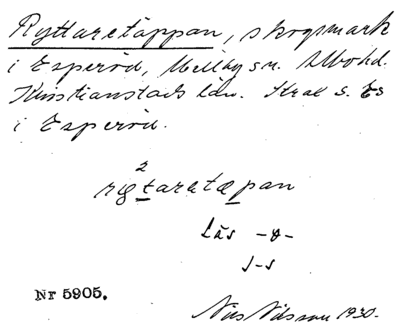 Ryttaretäppan, skogsmark
i Esperöd, Mellby sn. Albo hd.
Kristianstads län. Strax s. Es
i Esperöd.
2
rygtaretæpan
Läs -ɐ-
Nr 5905.
Nils Nilsson 1930.